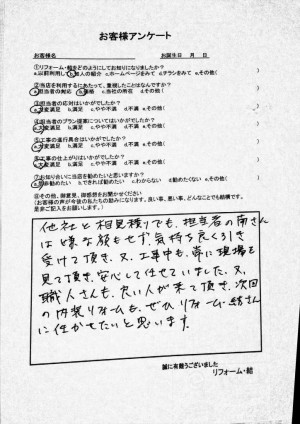 お客様アンケート
お客様名　お誕生日　月　日
①リフォーム・結をどのようにしてお知りになりましたか？
a.以前利用して b.知人の紹介 c.ホームページをみて d.チラシをみて e.その他(　)
②当店を利用するにあたって、重視したことはなんですか？
a.担当者の対応 b.価格 c.当社の所在 e.その他(　)
③担当者の応対はいかがでしたか？
a.大変満足 b.満足 c.やや不満 d.不満 e.その他(　)
④担当者のプラン提案についてはいかがでしたか？
a.大変満足 b.満足 c.やや不満 d.不満 e.その他(　)
⑤工事の進行具合はいかがでしたか？
a.大変満足 b.満足 c.やや不満 d.不満 e.その他(　)
⑥工事の仕上がりはいかがでしたか？
a.大変満足 b.満足 c.やや不満 d.不満 e.その他(　)
⑦お知り合いに当店を勧めたいと思いますか？
a.是非勧めたい b.できれば勧めたい c.わからない d.勧めたくない e.その他(　)
⑧その他、御意見、御感想をお聞かせください
(お客様の声が今後の私たちの励みになります。良い事、悪い事、どんなことでも結構です。
是非ご記入をお願いします。)
他社と相見積りでも、担当者の南さん
は嫌な顔もせず、気持ち良く引き
受けて頂き、又、工事中も、常に現場を
見て頂き、安心して任せていました。又、
職人さんも、良い人が来て頂き、次回
の内装リフォームも、ぜひ、リフォーム・結さん
に任かせたいと思います。
誠に有難うございました
リフォーム・結